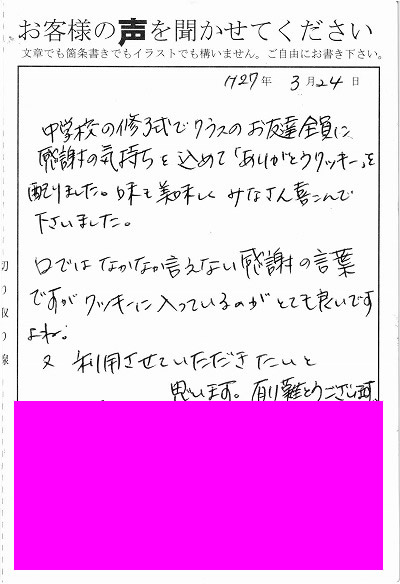 お客様の声を聞かせてください
文章でも箇条書きでもイラストでも構いません。ご自由にお書き下さい。
H27年 3月24日
中学校の修了式でクラスのお友達全員に
感謝の気持ちを込めて「ありがとうクッキー」を
配りました。味も美味しくみなさん喜こんで
下さいました。
口ではなかなか言えない感謝の言葉
ですがクッキーに入っているのがとても良いです
よね。
又 利用させていただきたいと
思います。有り難とうございます。
切り取り線